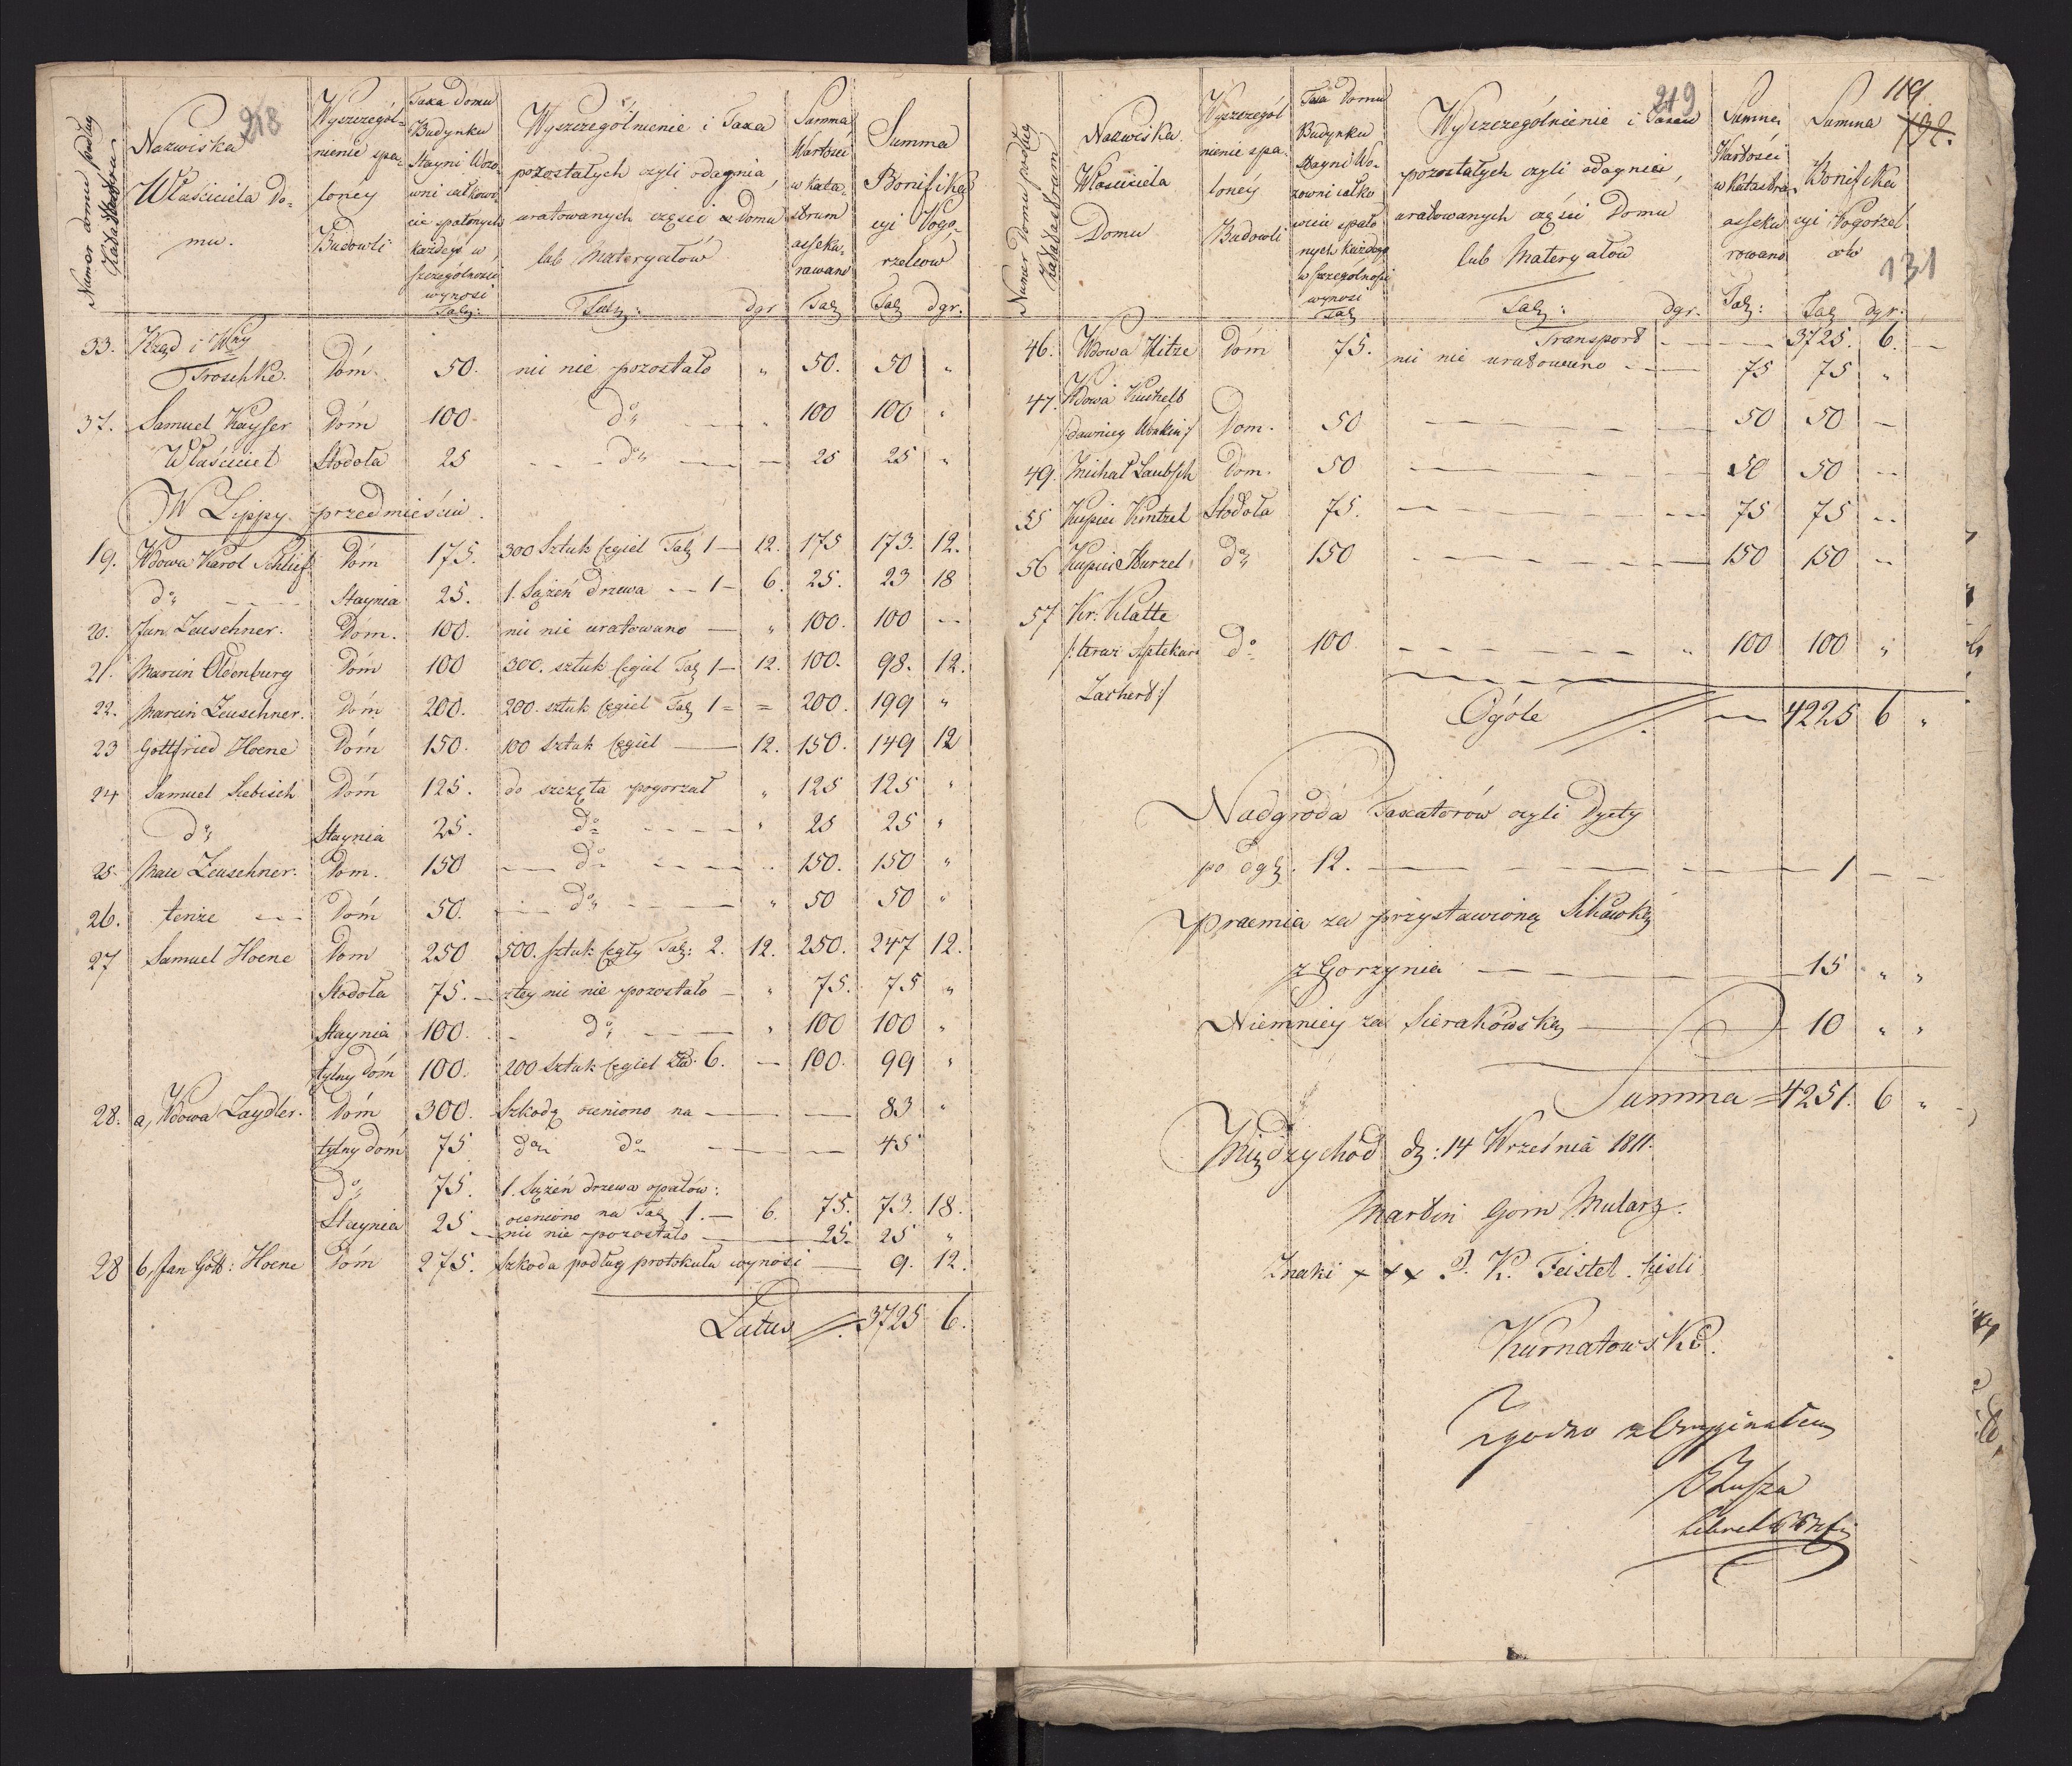 218
Numer domu podług Katastrum
Nazwiska Właściciela Domu.
Wyszczególnienie spaloney Budowli
Taxa Domu Budynku Stayni Wozowni całkowicie spalonych każdego w szczególności wynosi Tal:
Wyszczególnienie i Taxa pozostałych czyli od ognia uratowanych części Domu lub Materyałów Tal: dgr
Summa Wartości w Katastrum assekurowano Tal
Summa Bonifikacyi Pogorzelców Tal dgr.
33. Rząd i Wny
Troschke. Dóm. 50. nic nie pozostało " 50. 50 "
37. Samuel Kayser Dóm 100 do " 100 100 "
Właściciel Stodoła 25 do — 25 25 "
W Lippy przedmieściu.
19. Wdowa Karol Schlief Dóm 175. 300 Sztuk Cegieł Tal 1 — 12. 175 173. 12.
do Staynia 25. 1. Sążeń Drzewa — 1 — 6. 25. 23 18
20. Jan Leuschner. Dóm. 100. nic nie uratowano — " 100. 100 —
21. Marcin Oldenburg Dóm 100 300. sztuk Cegieł Tal 1 — 12. 100. 98. 12.
22. Marcin Leuschner. Dóm 200. 200. sztuk Cegieł Tal 1 = = 200. 199 "
23 Gottfried Hoene Dóm 150. 100 Sztuk Cegieł — 12. 150. 149 12
24 Samuel Liebisch Dóm 125. do szczętu pogorzał " 125 125 "
do Staynia 25. do " 25 25 "
25. Mac Leuschner. Dom. 150 do 150. 150 "
26. tenże — Dóm 50. do " 50 50 "
27 Samuel Hoene Dom 250 500. Sztuk Cegły Tal: 2. 12. 250. 247 12.
Stodoła 75. — z tey nic nie pozostało — " 75. 75 "
Staynia 100. do " 100 100 "
tylny Dóm 100. 200 Sztuk Cegieł Zł. 6. — 100. 99 "
28. a, Wdowa Laydler. Dóm 300. Szkodę oceniono na — — 83 "
tylny dom 75 do do — 45
do 75. 1. Sążeń drzewa opałow:
oceniono na Tal 1. — 6. 75. 73. 18.
Staynia 25 — nic nie pozostało — 25. 25 "
28 b, Jan Gott: Hoene Dóm 275. Szkoda podług protokułu wynosi — 9. 12.
Latus 3725 6.
219
119
192.
131
Numer Domu podług Katastrum
Nazwiska Właściciela Domu
Wyszczególnienie spaloney Budowli
Taxa Domu Budynku Stayni Wozowni całkowicie spalonych każdego w szczególności wynosi Tal
Wyszczególnienie i Taxa pozostałych czyli od ognia uratowanych części Domu lub Materyałów Tal: dgr.
Summa Wartości w Katastrum assekurowano Tal:
Summa Bonifikacyi Pogorzelców Tal dgr:
Transport — 3725. 6. —
46. Wdowa Kitze Dóm 75. nic nie uratowano — 75 75 "
47. Wdowa Kuckelt
/: dawniey :/ Dom. 50 — 50 50 —
49. Michał Laubsch Dom. 50 — 50 50 —
55 Kupiec Kintzel Stodoła 75. — 75 75 —
56 Kupiec Kurzel do 150 — 150 150 —
57 Kr: Klatte
/: teraz Aptekarz do 100 — " 100 100 "
Zachert :/
Ogóle — 4225 6 "
Nadgroda Taxatorów czyli Dyety
po dgr. 12. — 1 — —
Praemia za przystawioną Sikawkę
z Gorzynia — 15 " "
Niemniey za Sierakowską — 10 " "
Summa = 4251. 6 "
Międzychód d: 14 Września 1811.
Martin Gorn Mularz.
Znaki x x x P. K. Feistel. Cieśli
Kurnatowski.
Zgodno z Oryginałem